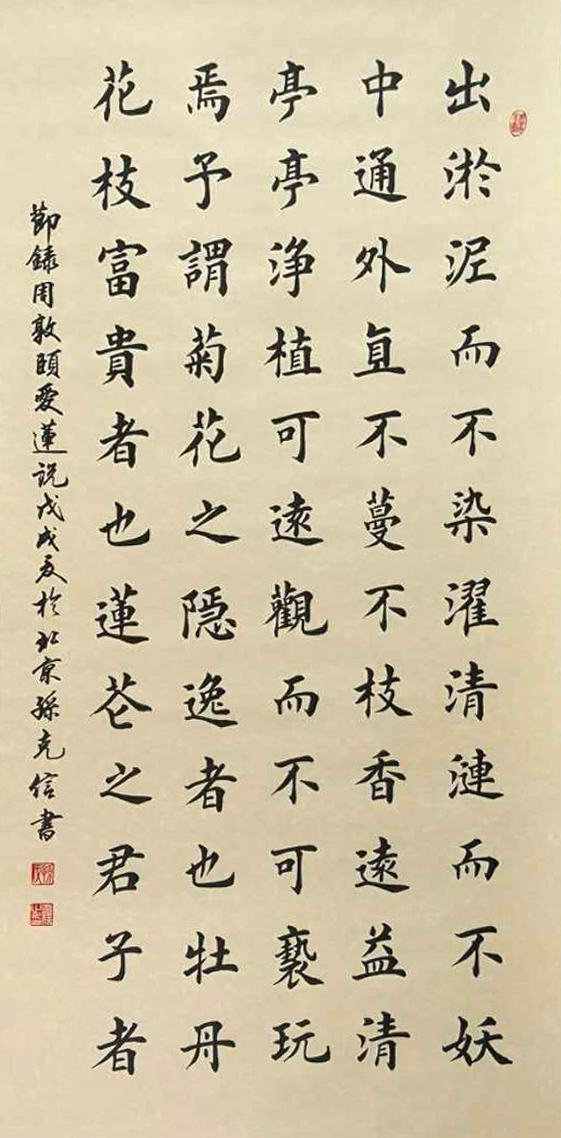 出淤泥而不染濯清漣而不妖
中通外直不蔓不枝香遠益清
亭亭淨植可遠觀而不可褻玩
焉予謂菊花之隱逸者也牡丹
花枝富貴者也蓮花之君子者
節錄周敦頤愛蓮說戊戌夏於北京孫克信書